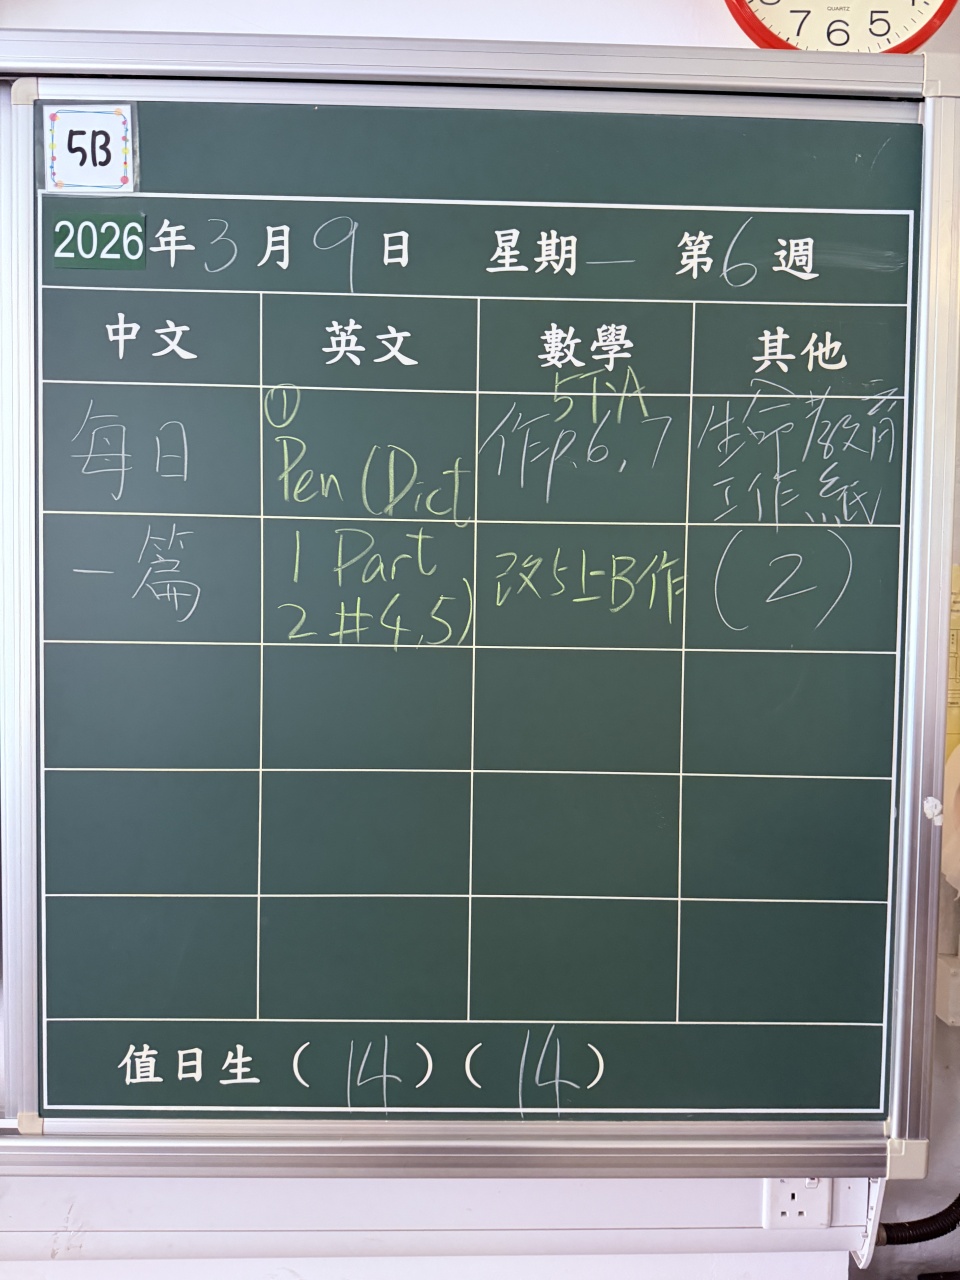 QUARTZ
7 6 5
5B
2026年3月9日 星期一 第6週
中文 英文 數學 其他
每日
一篇
①
Pen (Dict
1 Part
2 #4,5)
5下A
作p.6,7
改5上B作
生命教育
工作紙
(2)
值日生(14)(14)